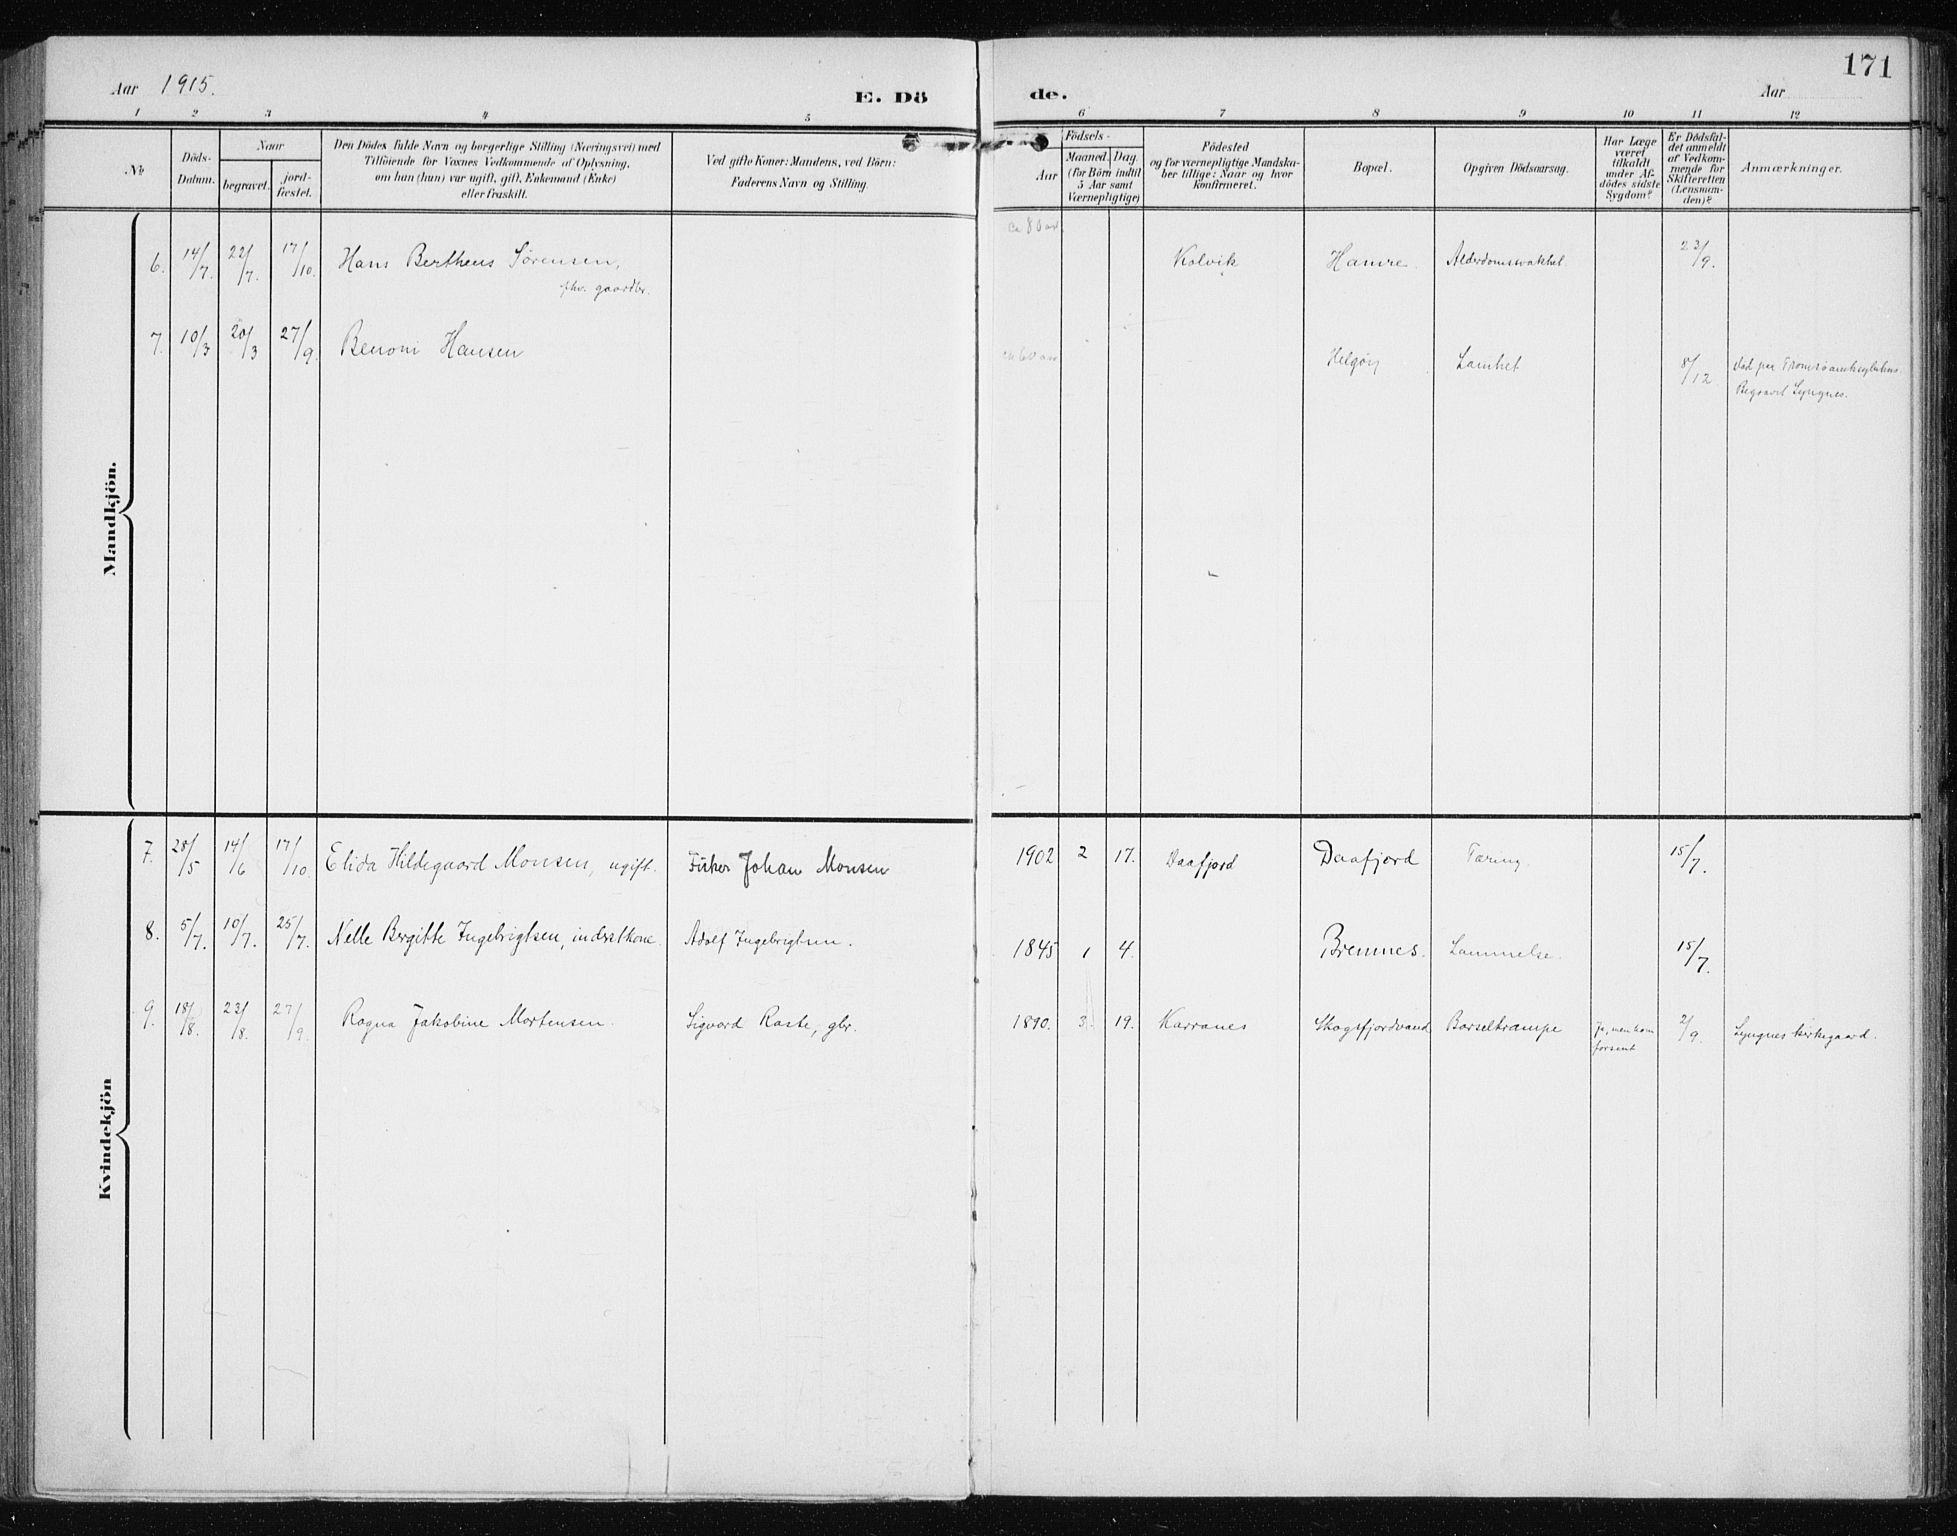 171
Aar 1915.
E. Dö de.
Aar
1 2 3 4 5 6 7 8 9 10 11 12
No
Döds-
Datum.
Naar
begravet.
jord-
fæstet.
Den Dödes fulde Navn og borgerlige Stilling (Næringsvei) med
Tilföiende for Voxnes Vedkommende af Oplysning,
om han (hun) var ugift, gift, Enkemand (Enke)
eller fraskilt.
Ved gifte Koner: Mandens, ved Börn:
Faderens Navn og Stilling.
Födsels-
Aar
Maaned. Dag.
(for Börn indtil
5 Aar samt
Værnepligtige)
Födested
og for værnepligtige Mandska-
ber tillige: Naar og hvor
konfirmeret.
Bopæl.
Opgiven Dödsaarsag.
Har Læge
været
tilkaldt
under Af-
dödes sidste
Sygdom?
Er Dödsfal-
det anmeldt
af Vedkom-
mende for
Skifteretten
(Lensman-
den)?
Anmærkninger.
Mandkjön.
ca 80 aar.
6. 14/7. 22/7. 17/10. Hans Bertheus Sörensen, Kolvik Hamre. Alderdomssvakhet. 23/9.
fhv. gaardbr.
7. 10/3 20/3 27/9. Benoni Hansen ca 60 aar Helgöy Lamhet 8/12. död paa
Begravet Lyngnes.
Kvindekjön
7. 28/5 14/6 17/10. Elida Hildegaard Monsen, ugift. Fisker Johan Monsen 1902 2 17. Daafjord Daafjord Tæring 15/7.
8. 5/7. 10/7. 25/7. Nelle Bergitte Ingebrigtsen, indsatkone. Adolf Ingebrigtsen. 1845 1 4. Bremnes. Lammelse. 15/7.
9. 18/8. 23/8. 27/9. Ragna Jakobine Mortensen. Sigvard Raste, gbr. 1890. 3. 19. Karranes Skogsfjordvand Barseltrampe Ja, men kom 2/9. Lyngnes kirkegaard.
forsent